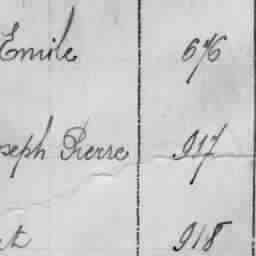 Emile 676
oseph Pierre 917
et 918